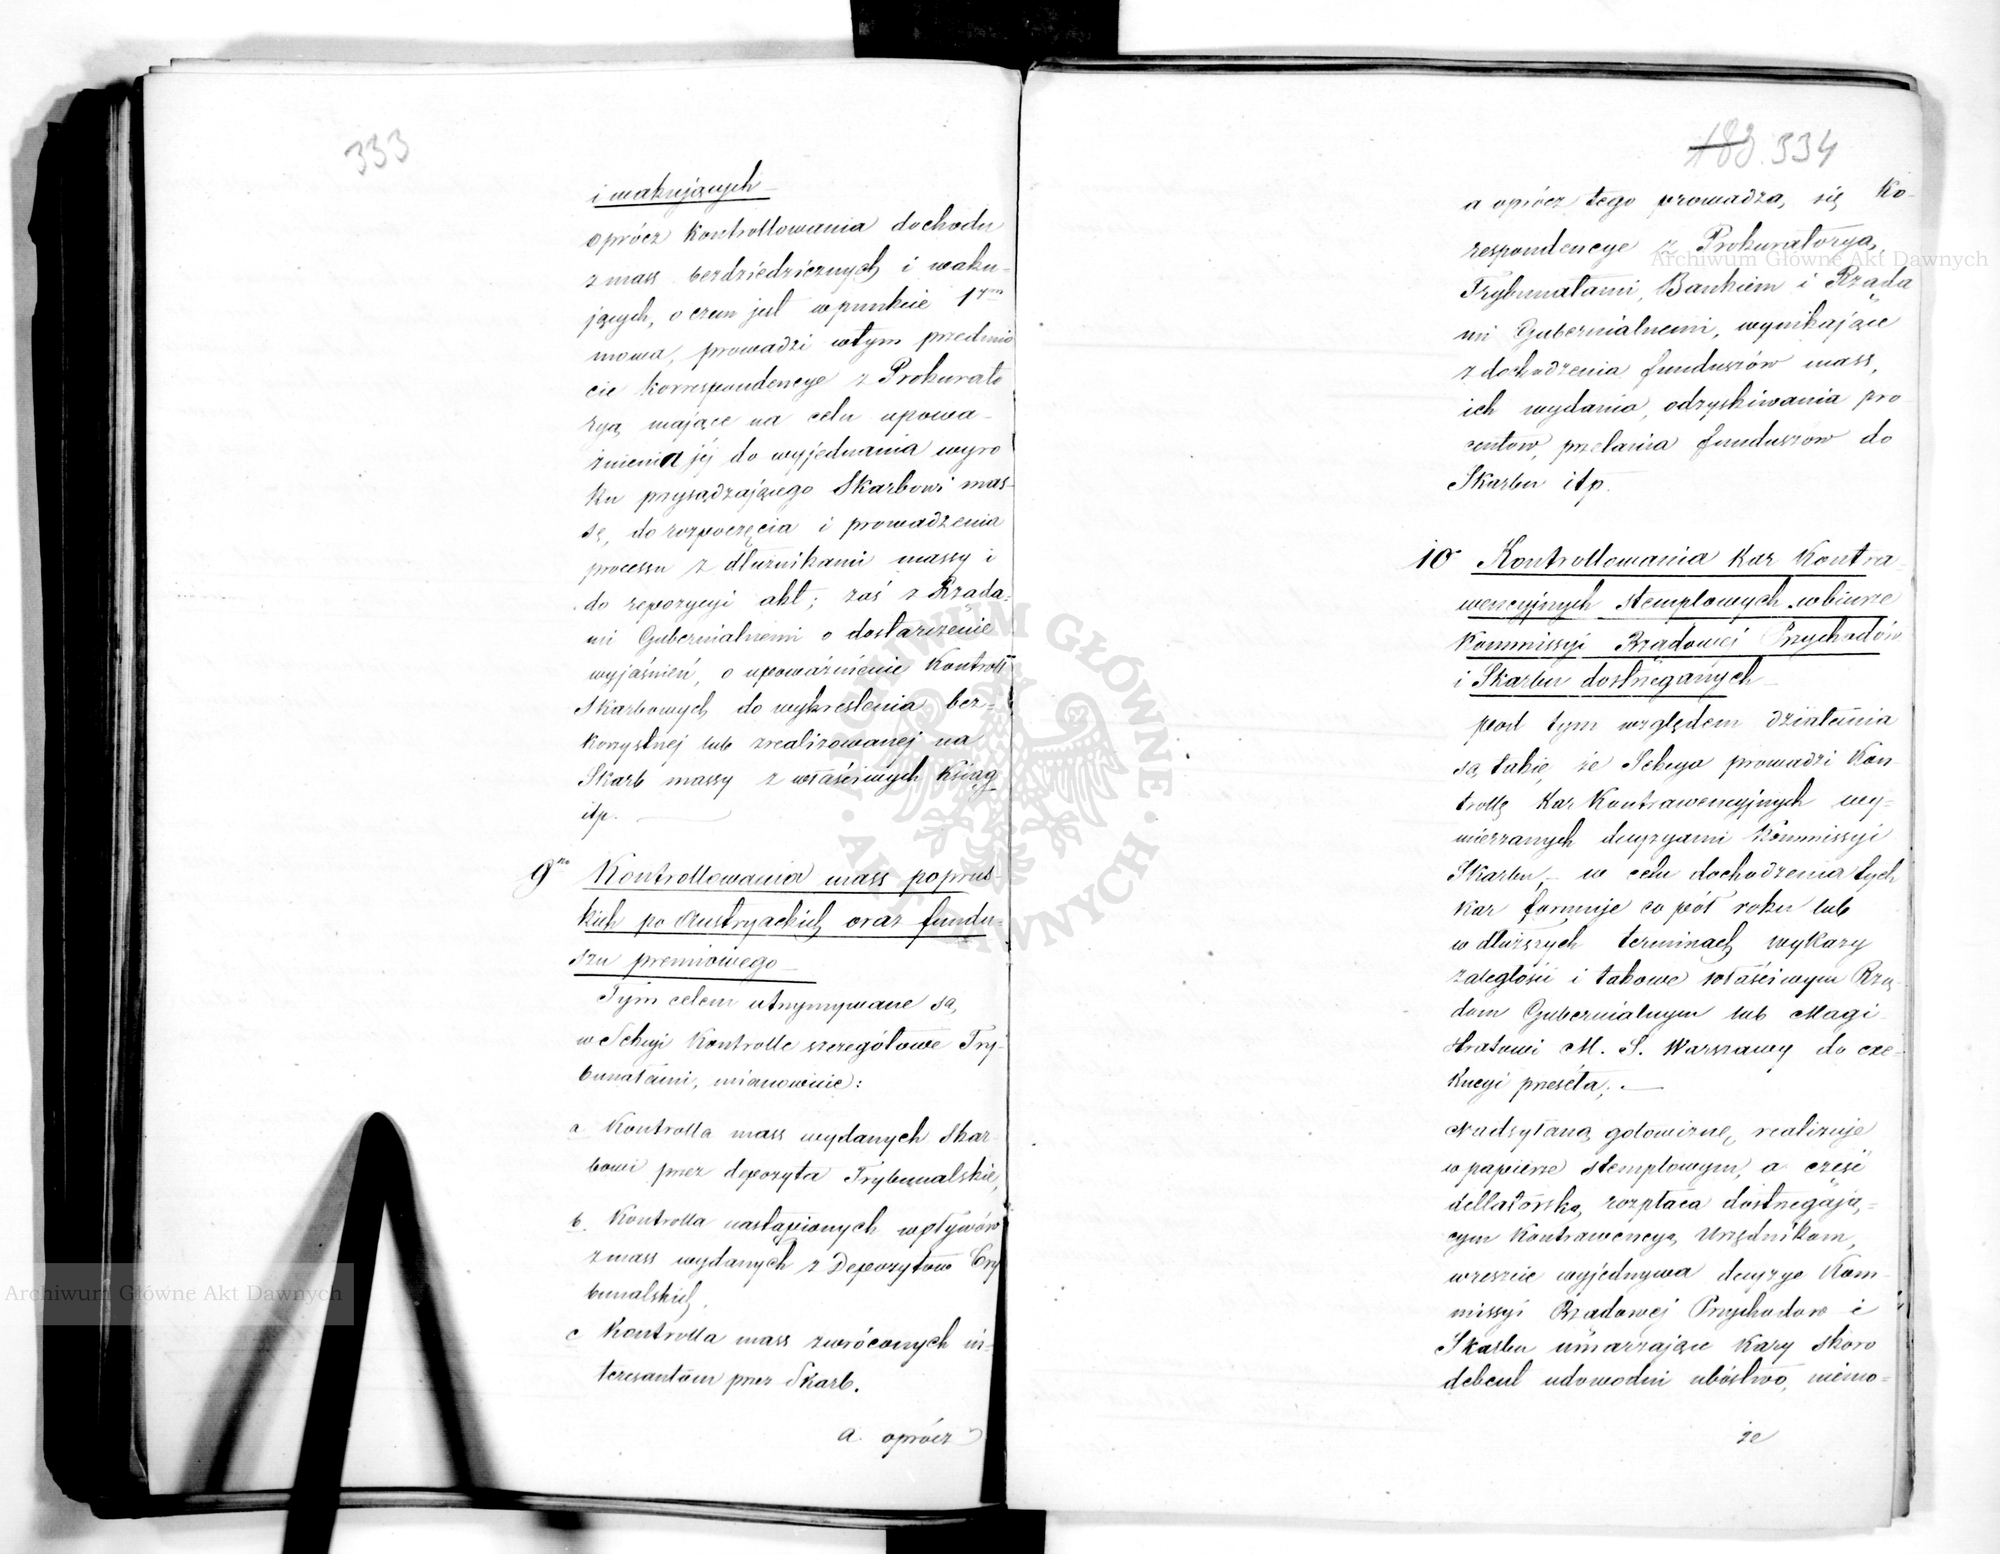 333
i wakujących
oprócz kontrollowania dochodu
z mass bezdziedzicznych i waku-
jących, o czem jest w punkcie 1ym
mowa, prowadzi w tym przedmio
cie korrespondencye z Prokurato
ryą mające na celu upowa-
żnienia jéj do wyjednania wyro
ku przysądzającego Skarbowi mas-
sę, do rozpoczęcia i prowadzenia
processu z dłużnikami massy i
do repozycyi akt; zaś z Rząda-
mi Gubernialnemi o dostarczenie
wyjaśnień, o upoważnienie Kontroll
Skarbowych do wykreślenia bez-
korzystnej lub zrealizowanej na
Skarb massy z właściwych Ksiąg
itp.
9no Kontrollowania mass poprus-
kich po Austryackich oraz fundu-
szu premiowego
Tym celem utrzymywane są,
w Sekcyi Kontrolle szczegółowe Try-
bunałami, mianowicie:
a Kontrolla mass wydanych Skar
bowi przez depozyta Trybunalskie,
b. Kontrolla nastąpionych wpływów
z mass wydanych z Depozytów Try
bunalskich,
c Kontrolla mass zwróconych in-
teresantom przez Skarb.
a oprócz
183. 334
a oprócz tego prowadzą się Ko-
respondencye z Prokuratoryą,
Trybunałami, Bankiem i Rząda
mi Gubernialnemi, wynikające
z dochodzenia funduszów mass,
ich wydania, odzyskiwania pro
centów, przelania funduszów do
Skarbu itp.
10 Kontrollowania kar Kontra
wencyjnych stemplowych w biurze
Kommissyi Rządowej Przychodów
i Skarbu dostrzeganych
pod tym względem działania
są takie, że Sekcya prowadzi Kon-
trollę kar Kontrawencyjnych wy-
mierzanych decyzyami Kommissyi
Skarbu, – w celu dochodzenia tych
kar formuje co pół roku lub
w dłuższych terminach wykazy
zaległości i takowe właściwym Rzą-
dom Gubernialnym lub Magi-
stratowi M. S. Warszawy do exe-
kucyi przeséła; –
Nadsyłaną gotowiznę, realizuje
w papierze stemplowym, a część
dellatorską rozpłaca dostrzegają-
cym Kontrawencyą Urzędnikom,
wreszcie wyjednywa decyzye Kom-
missyi Rządowej Przychodow i
Skarbu umarzające kary skoro
debent udowodni ubóstwo, niemo-
że
Archiwum Główne Akt Dawnych
Archiwum Główne Akt Dawnych
ARCHIWUM GŁÓWNE AKT DAWNYCH